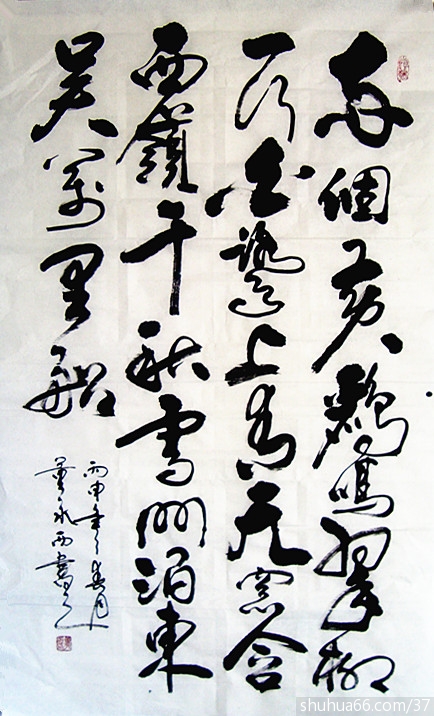 兩個黃鸝鳴翠柳
一行白鷺上青天窓含
西嶺千秋雪門泊東
吴萬里船
丙申年春月
董永西書
shuhua66.com/37